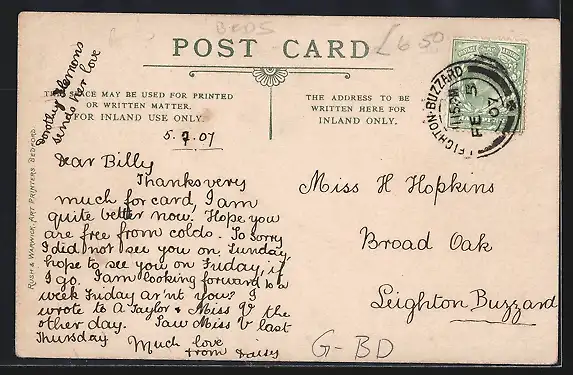 BEDS
£6.50
POST CARD
THIS SPACE MAY BE USED FOR PRINTED
OR WRITTEN MATTER.
FOR INLAND USE ONLY.
THE ADDRESS TO BE
WRITTEN HERE FOR
INLAND ONLY.
LEIGHTON-BUZZARD
11.45 AM
FE 5
07
Dorothy Clemons
sends her love
RUSH & WARWICK, ART PRINTERS, BEDFORD.
5.2.07
Dear Billy
Thanks very
much for card, I am
quite better now. Hope you
are free from colds. So sorry
I did not see you on Sunday,
hope to see you on Friday, if
I go. I am looking forward to a
week Friday ar'nt you? I
wrote to A Taylor & Miss V the
other day. Saw Miss V last
Thursday
Much love
from Daisy
Miss H Hopkins
Broad Oak
Leighton Buzzard
G-BD